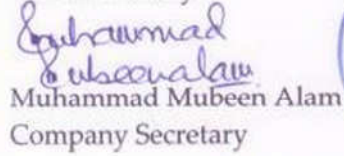 Muhammad
Mubeenalam
Muhammad Mubeen Alam
Company Secretary